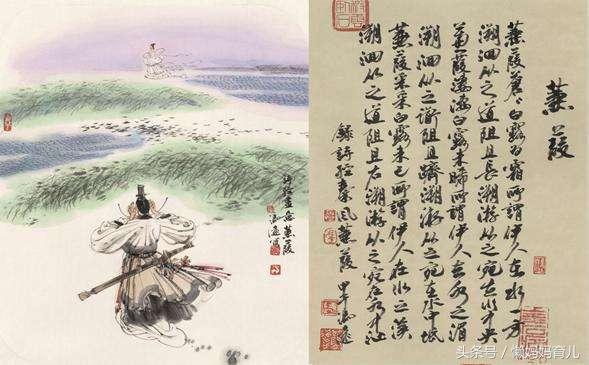 诗经畫意 蒹葭
蒹葭
蒹葭蒼々白露為霜所謂伊人在水一方
溯洄从之道阻且長溯游从之宛在水中央
蒹葭萋萋白露未晞所謂伊人在水之湄
溯洄从之道阻且躋溯游从之宛在水中坻
蒹葭采采白露未已所謂伊人在水之涘
溯洄从之道阻且右溯游从之宛在水中沚
錄詩经秦风蒹葭 甲午
头条号 / 懒妈妈育儿